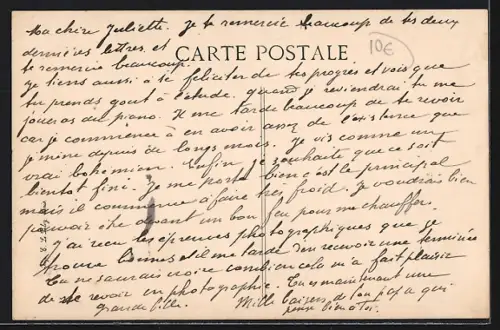 Ma chère Juliette. Je te remercie beaucoup de tes deux
dernières lettres et
CARTE POSTALE
10€
te remercie beaucoup.
Je tiens aussi à te féliciter de tes progrès et vois que
tu prends gout à l'étude. quand je reviendrai tu me
joueras du piano. Il me tarde beaucoup de te revoir
car je commence à en avoir assez de l'existence que
je mène depuis de longs mois. Je vis comme un
vrai bohémien. Enfin je souhaite que ce soit
bientot fini. Je me porte bien c'est le principal
mais il commence à faire très froid. Je voudrais bien
pouvoir être devant un bon feu pour me chauffer.
J'ai reçu les épreuves photographiques que je
trouve bonnes et il me tarde d'en recevoir une terminée
Tu ne saurais croire combien cela m'a fait plaisir
de te revoir en photographie. Tu es maintenant une
grande fille. Mille baisers de ton papa qui
pense bien à toi.